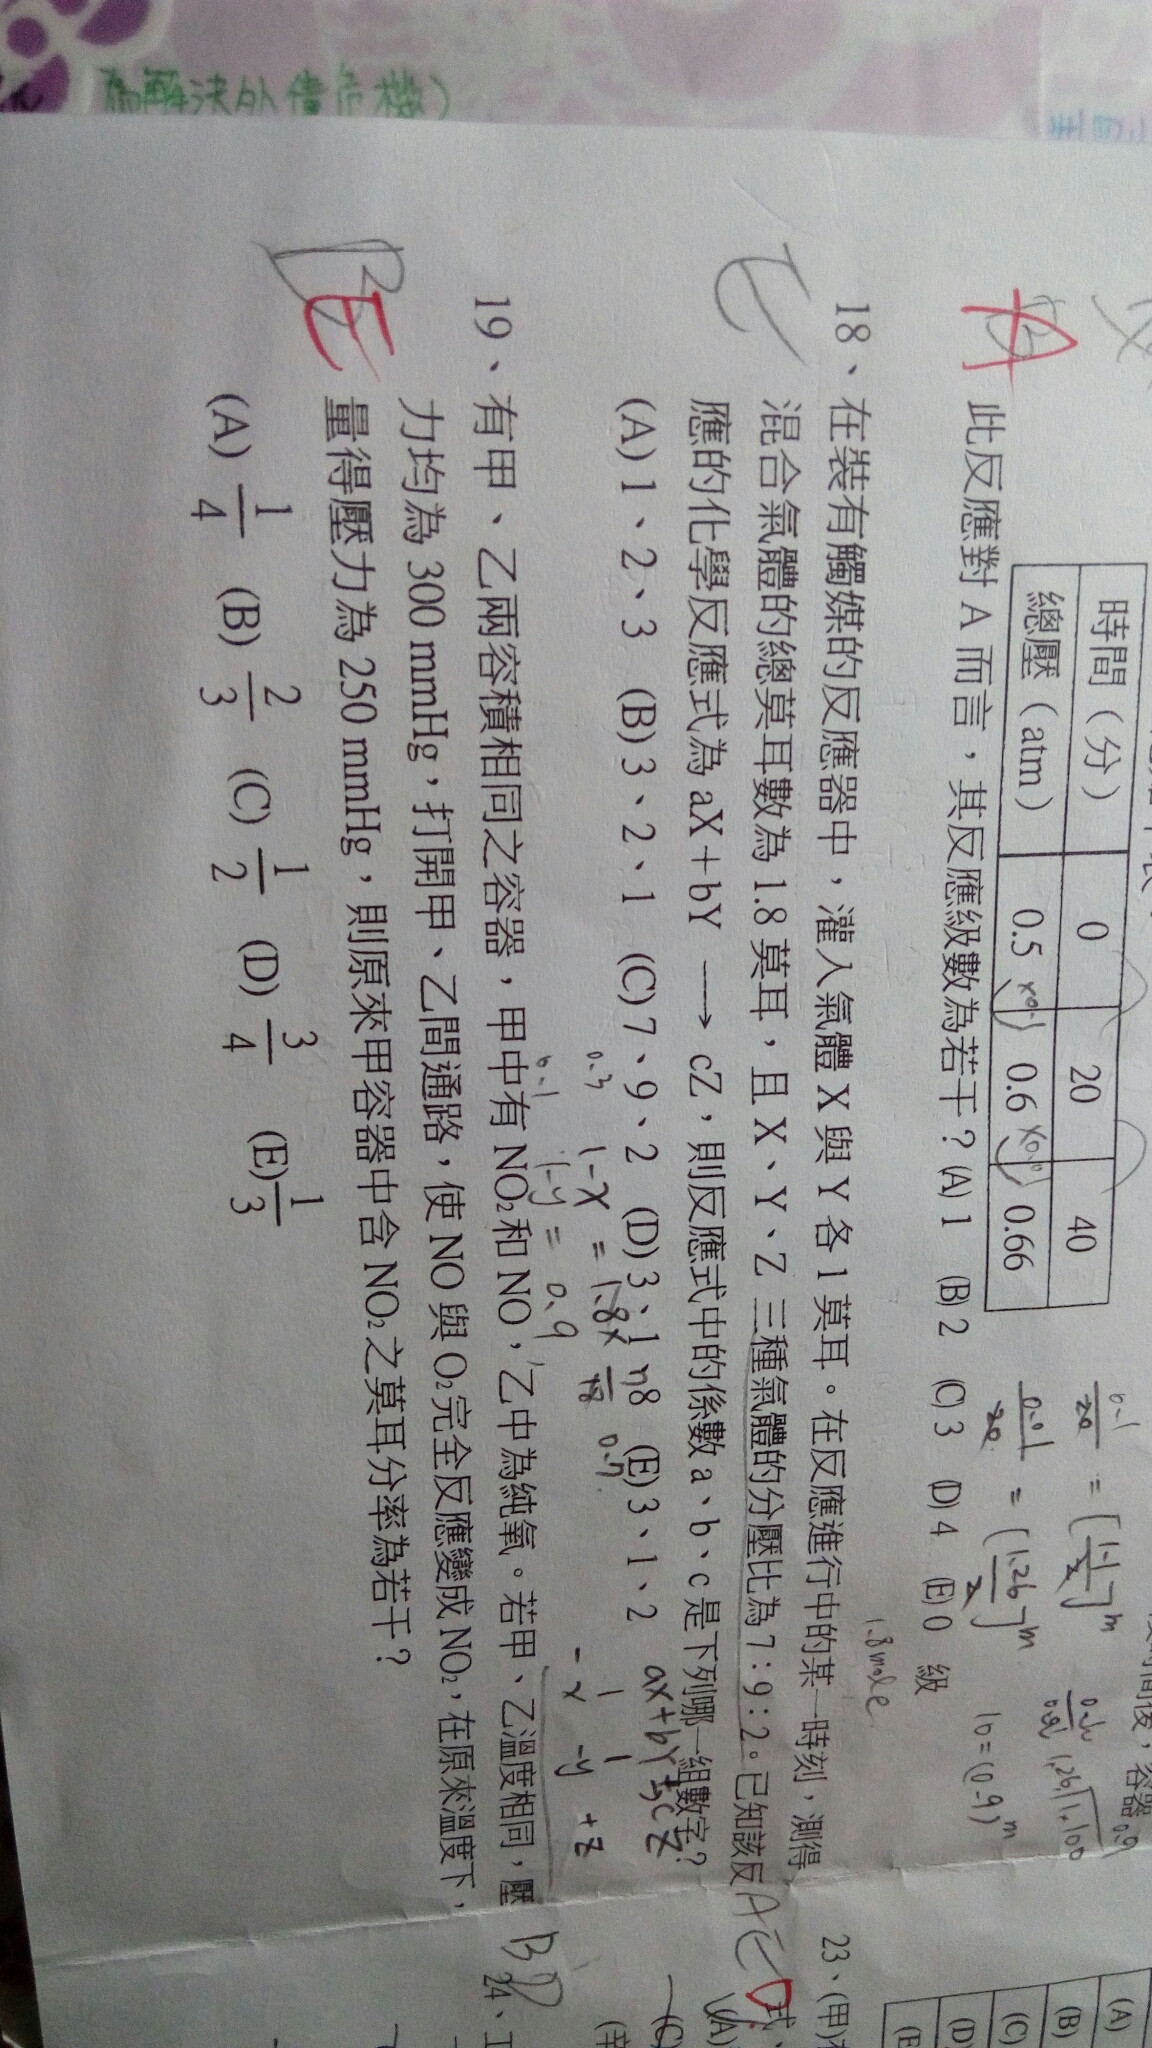 解決外債危機)
時間（分） 0 20 40
總壓（atm） 0.5 0.6 0.66
此反應對 A 而言，其反應級數為若干？(A) 1 (B) 2 (C) 3 (D) 4 (E) 0 級
A
18、在裝有觸媒的反應器中，灌入氣體 X 與 Y 各 1 莫耳。在反應進行中的某一時刻，測得
混合氣體的總莫耳數為 1.8 莫耳，且 X、Y、Z 三種氣體的分壓比為 7：9：2。已知該反
應的化學反應式為 aX＋bY ⟶ cZ，則反應式中的係數 a、b、c 是下列哪一組數字？
(A) 1、2、3 (B) 3、2、1 (C) 7、9、2 (D) 3、1、8 (E) 3、1、2
1.8 mole
aX+bY→cZ
1 1
-x -y +z
0.3 1-x = 1.8×
0.7
0.1 1-y = 0.9
19、有甲、乙兩容積相同之容器，甲中有 NO₂和 NO，乙中為純氧。若甲、乙溫度相同，壓
力均為 300 mmHg，打開甲、乙間通路，使 NO 與 O₂完全反應變成 NO₂，在原來溫度下，
量得壓力為 250 mmHg，則原來甲容器中含 NO₂之莫耳分率為若干？
(A) 1/4 (B) 2/3 (C) 1/2 (D) 3/4 (E) 1/3
B E
23、(甲)
(A)
(B)
(C)
(D)
(E)
24、